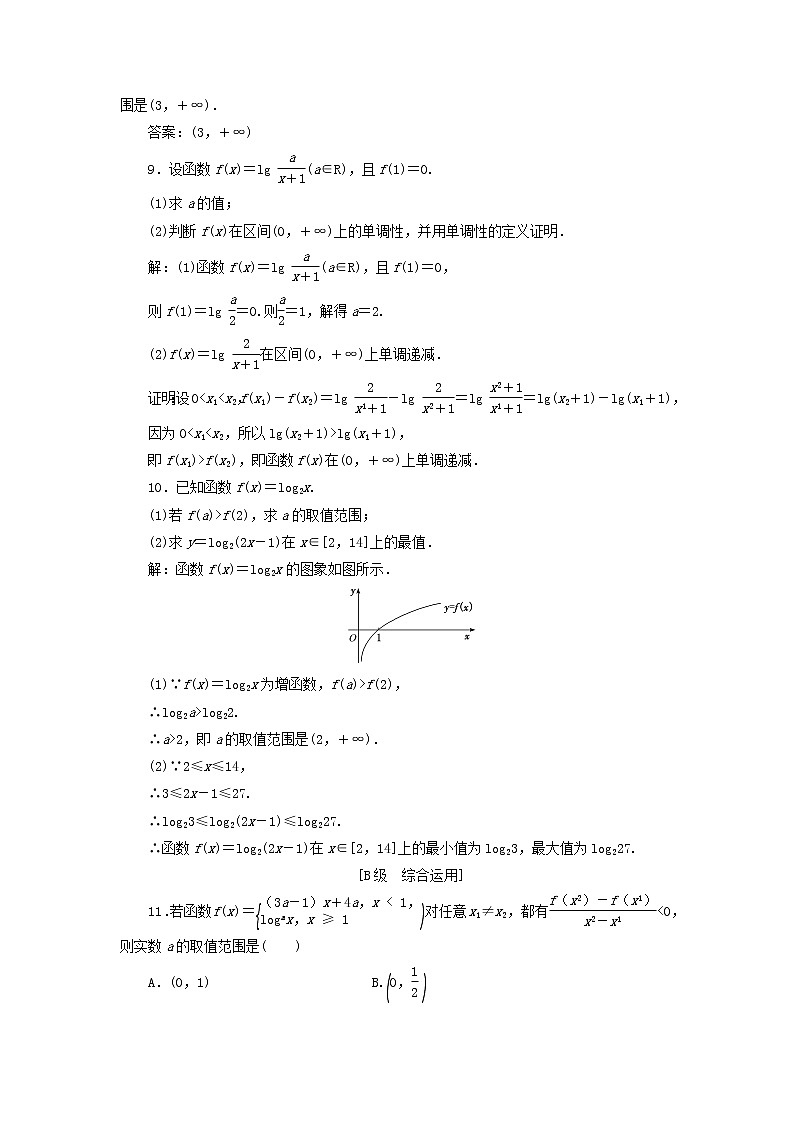 围是(3,+∞).
答案:(3,+∞)
9.设函数 f(x)=lg a/(x+1)(a∈R),且 f(1)=0.
(1)求 a 的值;
(2)判断 f(x)在区间(0,+∞)上的单调性,并用单调性的定义证明.
解:(1)函数 f(x)=lg a/(x+1)(a∈R),且 f(1)=0,
则 f(1)=lg a/2=0.则a/2=1,解得 a=2.
(2)f(x)=lg 2/(x+1)在区间(0,+∞)上单调递减.
证明:设 0<x₁<x₂,f(x₁)-f(x₂)=lg 2/(x¹+1)-lg 2/(x²+1)=lg (x²+1)/(x¹+1)=lg(x₂+1)-lg(x₁+1),
因为 0<x₁<x₂,所以 lg(x₂+1)>lg(x₁+1),
即 f(x₁)>f(x₂),即函数 f(x)在(0,+∞)上单调递减.
10.已知函数 f(x)=log₂x.
(1)若 f(a)>f(2),求 a 的取值范围;
(2)求 y=log₂(2x-1)在 x∈[2,14]上的最值.
解:函数 f(x)=log₂x 的图象如图所示.
y
y=f(x)
O 1 x
(1)∵f(x)=log₂x 为增函数,f(a)>f(2),
∴log₂a>log₂2.
∴a>2,即 a 的取值范围是(2,+∞).
(2)∵2≤x≤14,
∴3≤2x-1≤27.
∴log₂3≤log₂(2x-1)≤log₂27.
∴函数 f(x)=log₂(2x-1)在 x∈[2,14]上的最小值为 log₂3,最大值为 log₂27.
[B级 综合运用]
11.若函数 f(x)={(3a-1)x+4a,x<1, logᵃx,x≥1)对任意 x₁≠x₂,都有(f(x²)-f(x¹))/(x²-x¹)<0,
则实数 a 的取值范围是( )
A.(0,1) B.(0,1/2)